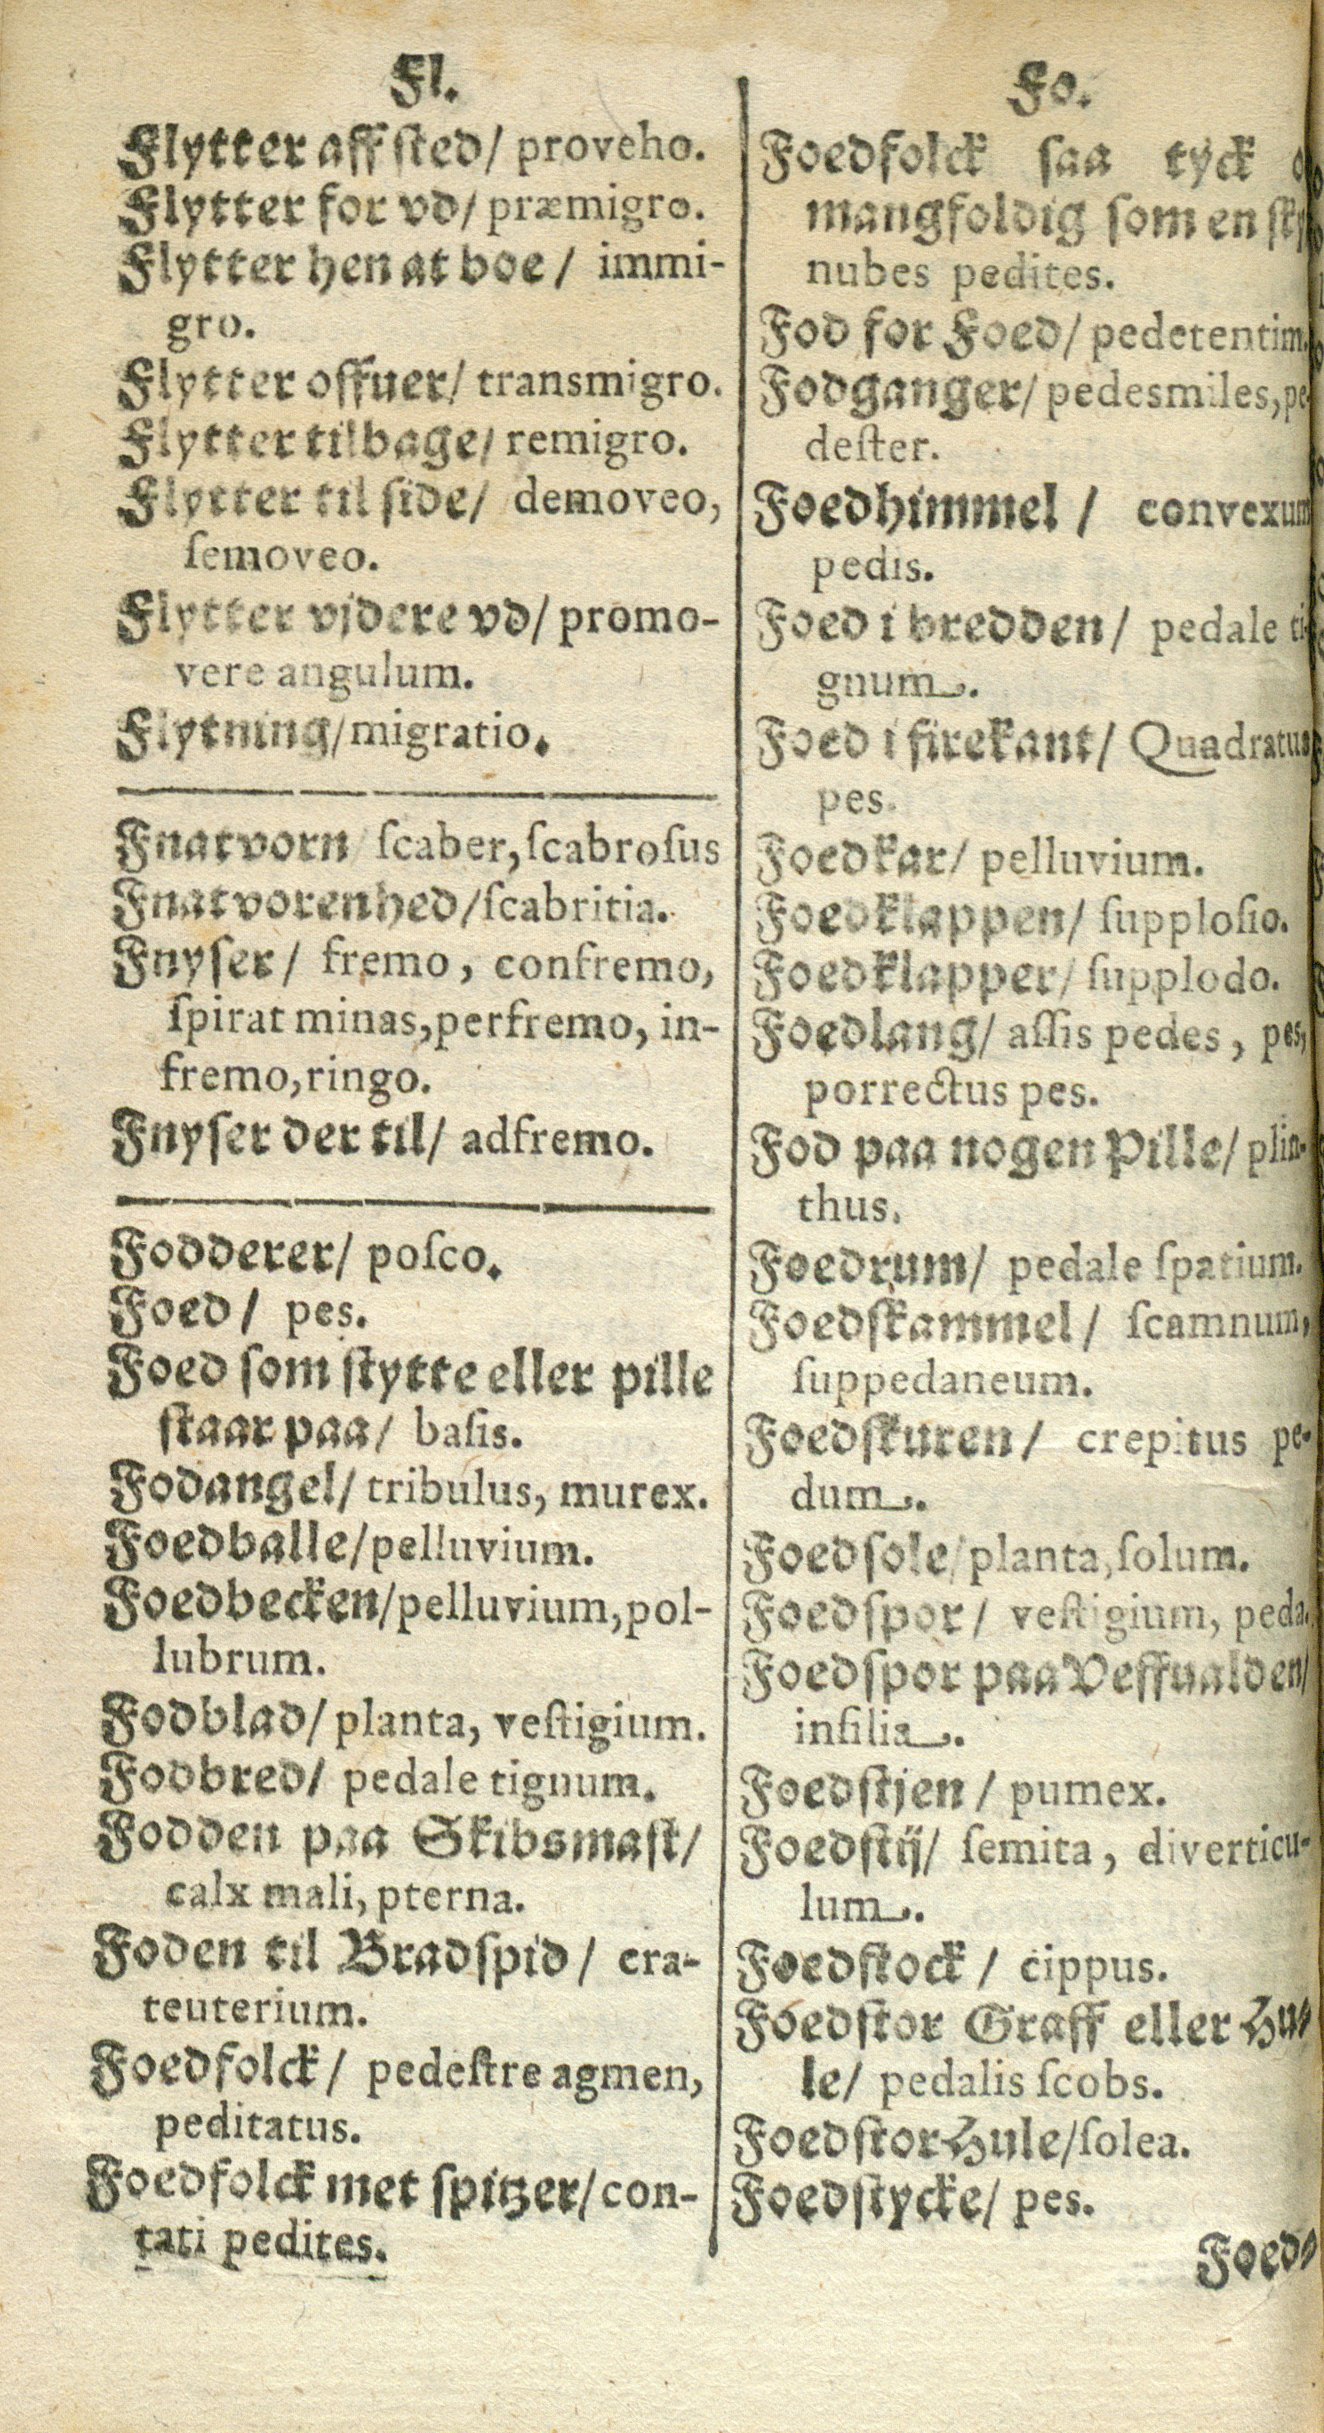 Fl.
Flytter aff sted/ proveho.
Flytter for vd/ præmigro.
Flytter hen at boe/ immi-
gro.
Flytter offuer/ transmigro.
Flytter tilbage/ remigro.
Flytter til side/ demoveo,
ſemoveo.
Flytter vjdere vd/ promo-
vere angulum.
Flytning/migratio.
Fnatvorn/ ſcaber,ſcabroſus
Fnatvorenhed/ſcabritia.
Fnyser/ fremo, confremo,
ſpirat minas,perfremo, in-
fremo,ringo.
Fnyser der til/ adfremo.
Fodderer/ poſco.
Foed/ pes.
Foed som stytte eller pille
staar paa/ baſis.
Fodangel/ tribulus, murex.
Foedballe/pelluvium.
Foedbecken/pelluvium,pol-
lubrum.
Fodblad/ planta, veſtigium.
Fodbred/ pedale tignum.
Fodden paa Skibsmast/
calx mali, pterna.
Foden til Bradspid/ cra-
teuterium.
Foedfolck/ pedeſtre agmen,
peditatus.
Foedfolck met spitzer/con-
tati pedites.
Fo.
Foedfolck saa tyck
mangfoldig som en
nubes pedites.
Fod for Foed/ pedetentim.
Fodganger/ pedesmiles, pe-
deſter.
Foedhimmel/ convexum
pedis.
Foed i bredden/ pedale ti-
gnum.
Foed i firekant/ Quadratus
pes.
Foedkar/ pelluvium.
Foedklappen/ ſupploſio.
Foedklapper/ ſupplodo.
Foedlang/ aſſis pedes, pes,
porrectus pes.
Fod paa nogen Pille/ plin-
thus.
Foedrum/ pedale ſpatium.
Foedskammel/ ſcamnum,
ſuppedaneum.
Foedskuren/ crepitus pe-
dum.
Foedsole/planta,ſolum.
Foedspor/ veſtigium, peda.
Foedspor paa Veffualden/
inſilia.
Foedstjen/ pumex.
Foedstij/ ſemita, diverticu-
lum.
Foedstock/ cippus.
Foedstor Graff eller Hu-
le/ pedalis ſcobs.
Foedstor Hule/ſolea.
Foedstycke/ pes.
Foed-